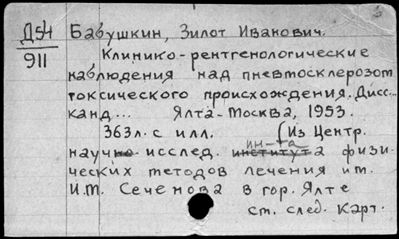 Д54
911
Бабушкин, Зилот Иванович.
Клинико-рентгенологические
наблюдения над пневтосклерозом
токсического происхождения. Дисс.
канд... Ялта-Москва, 1953.
363л. с илл. (Из Центр.
научно исслед. института ин-та физи-
ческих методов лечения им.
И.М. Сеченова в гор. Ялте
ст. след. карт.